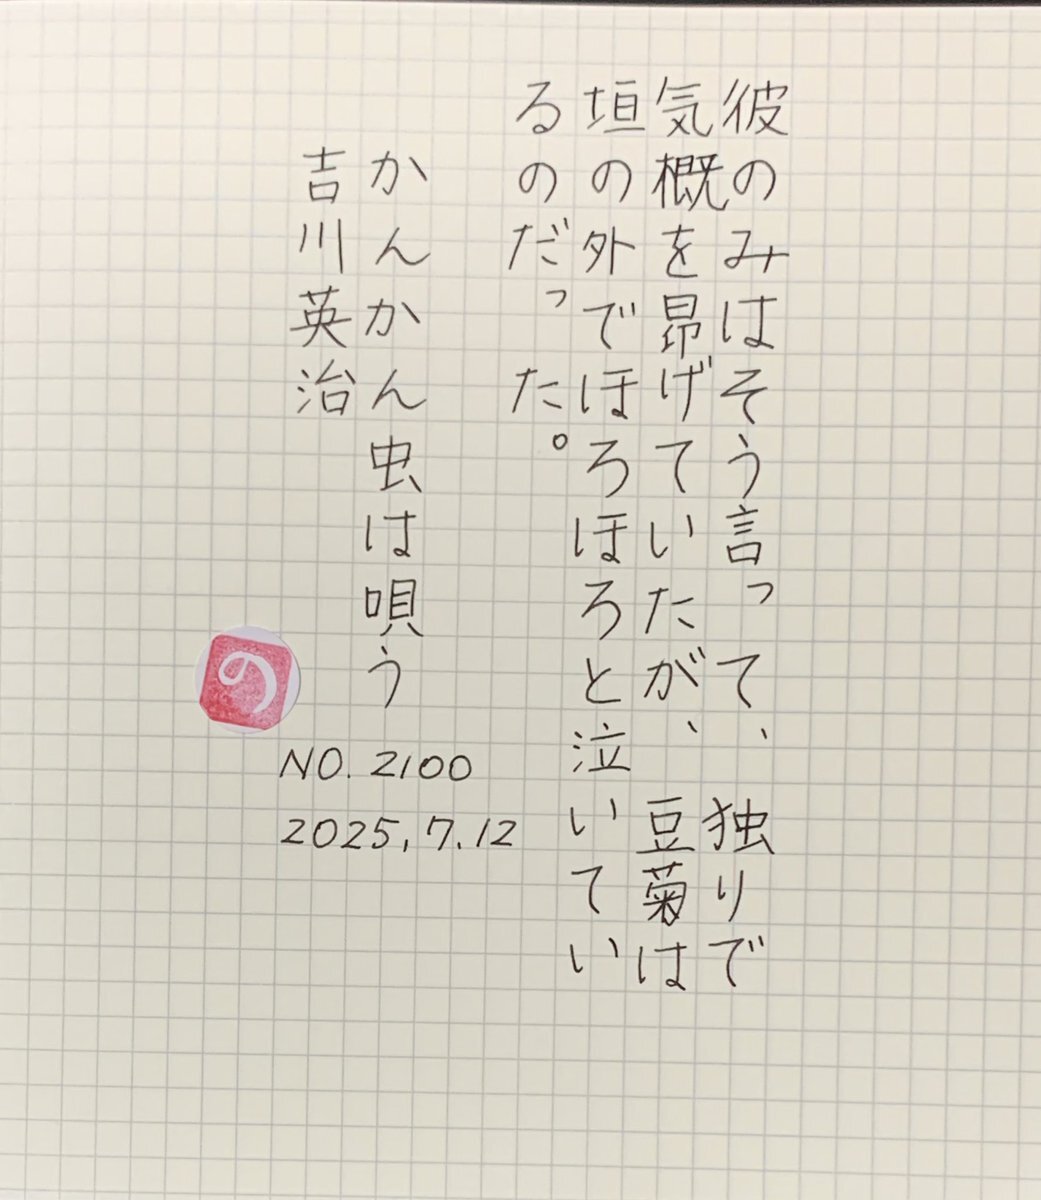 彼のみはそう言って、独りで
気概を昴げていたが、豆菊は
垣の外でほろほろと泣いてい
るのだった。
かんかん虫は唄う
吉川英治
の
NO. 2100
2025, 7. 12